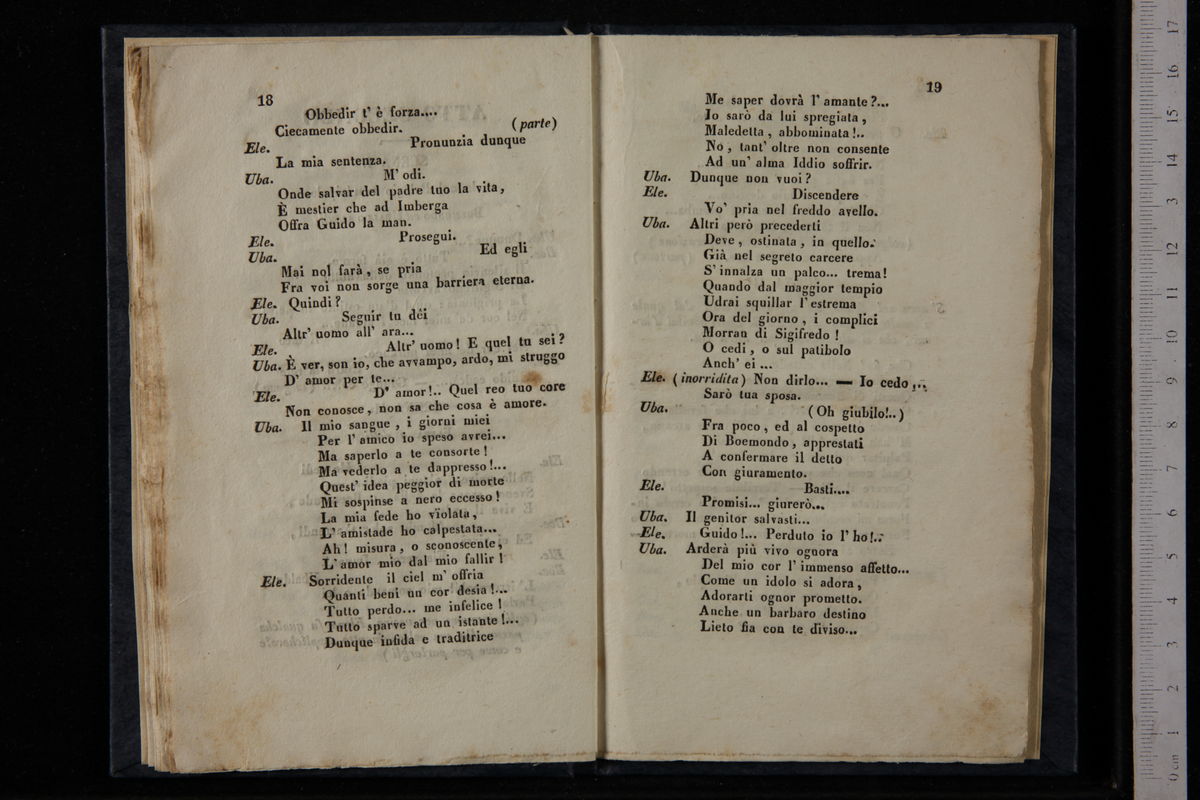 18
Obbedir t' è forza....
Ciecamente obbedir. (parte)
Ele. Pronunzia dunque
La mia sentenza.
Uba. M' odi.
Onde salvar del padre tuo la vita,
È mestier che ad Imberga
Offra Guido la man.
Ele. Prosegui.
Uba. Ed egli
Mai nol farà, se pria
Fra voi non sorge una barriera eterna.
Ele. Quindi?
Uba. Seguir tu déi
Altr' uomo all' ara...
Ele. Altr' uomo! E quel tu sei?
Uba. È ver, son io, che avvampo, ardo, mi struggo
D' amor per te...
Ele. D' amor!.. Quel reo tuo core
Non conosce, non sa che cosa è amore.
Uba. Il mio sangue, i giorni miei
Per l' amico io speso avrei...
Ma saperlo a te consorte!
Ma vederlo a te dappresso!...
Quest' idea peggior di morte
Mi sospinse a nero eccesso!
La mia fede ho violata,
L' amistade ho calpestata...
Ah! misura, o sconoscente,
L' amor mio dal mio fallir!
Ele. Sorridente il ciel m' offria
Quanti beni un cor desia!...
Tutto perdo... me infelice!
Tutto sparve ad un istante!...
Dunque infida e traditrice
19
Me saper dovrà l' amante?...
Io sarò da lui spregiata,
Maledetta, abbominata!..
No, tant' oltre non consente
Ad un' alma Iddio soffrir.
Uba. Dunque non vuoi?
Ele. Discendere
Vo' pria nel freddo avello.
Uba. Altri però precederti
Deve, ostinata, in quello.
Già nel segreto carcere
S' innalza un palco... trema!
Quando dal maggior tempio
Udrai squillar l' estrema
Ora del giorno, i complici
Morran di Sigifredo!
O cedi, o sul patibolo
Anch' ei...
Ele. (inorridita) Non dirlo... — Io cedo...
Sarò tua sposa.
Uba. (Oh giubilo!..)
Fra poco, ed al cospetto
Di Boemondo, apprestati
A confermare il detto
Con giuramento.
Ele. Basti....
Promisi... giurerò...
Uba. Il genitor salvasti...
Ele. Guido!... Perduto io l' ho!..
Uba. Arderà più vivo ognora
Del mio cor l' immenso affetto...
Come un idolo si adora,
Adorarti ognor prometto.
Anche un barbaro destino
Lieto fia con te diviso...
0 cm 1 2 3 4 5 6 7 8 9 10 11 12 13 14 15 16 17